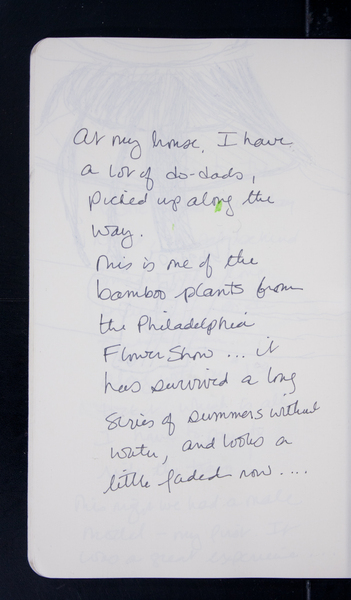 At my house, I have
a lot of do-dads,
picked up along the
way.
This is one of the
bamboo plants from
the Philadelphia
Flower Show ... it
has survived a long
series of summers without
water, and looks a
little faded now ....